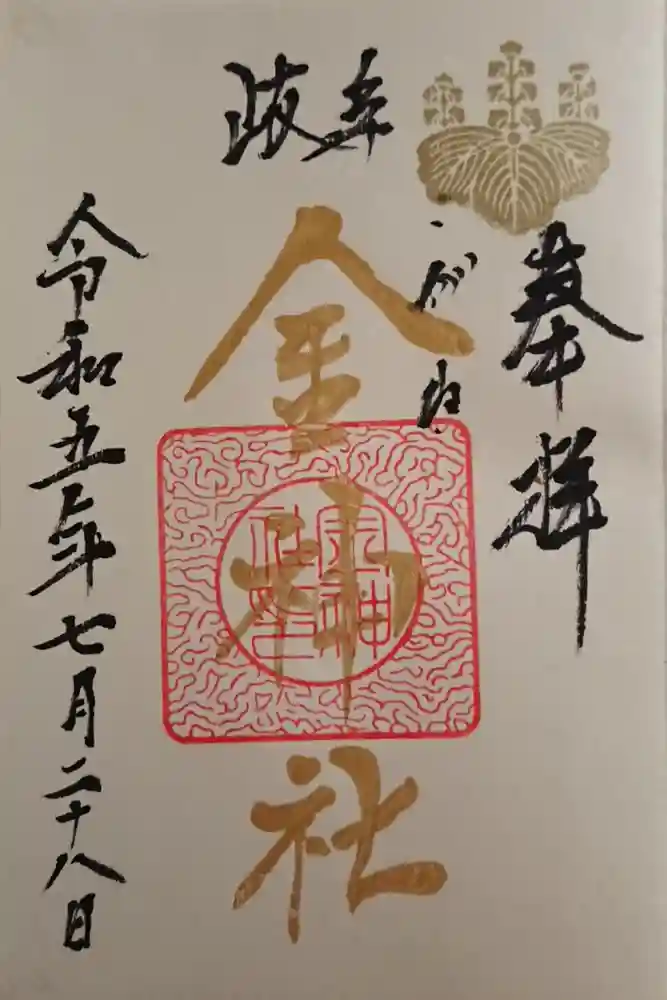 奉拝
岐阜
こがね
金神社
令和五年七月二十八日